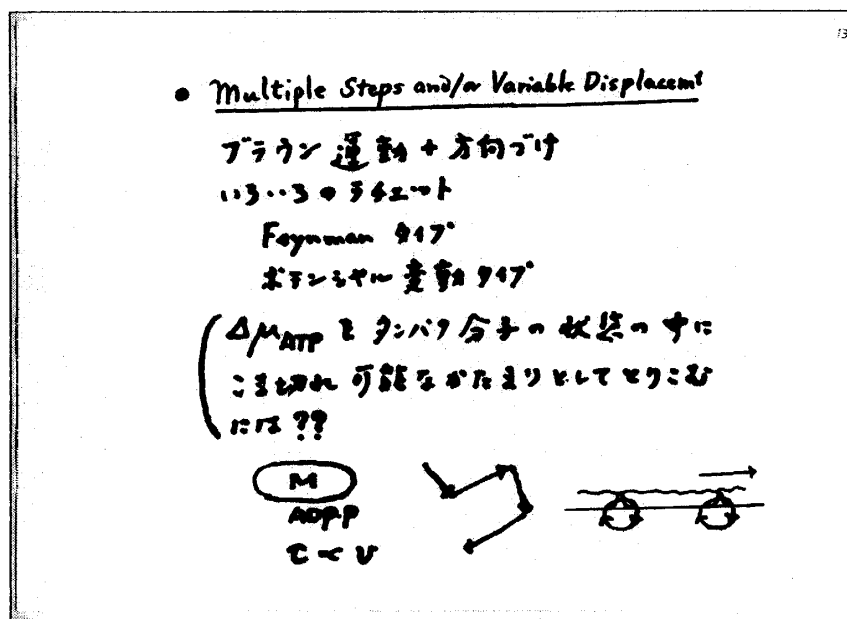 13
• Multiple Steps and/or Variable Displacemt
ブラウン運動 + 方向づけ
いろいろのラチェット
Feynman タイプ
ポテンシャル変動タイプ
ΔμATP を タンパク分子の状態の中に
こま切れ可能なかたまりとしてとりこむ
には??
M
ADPP